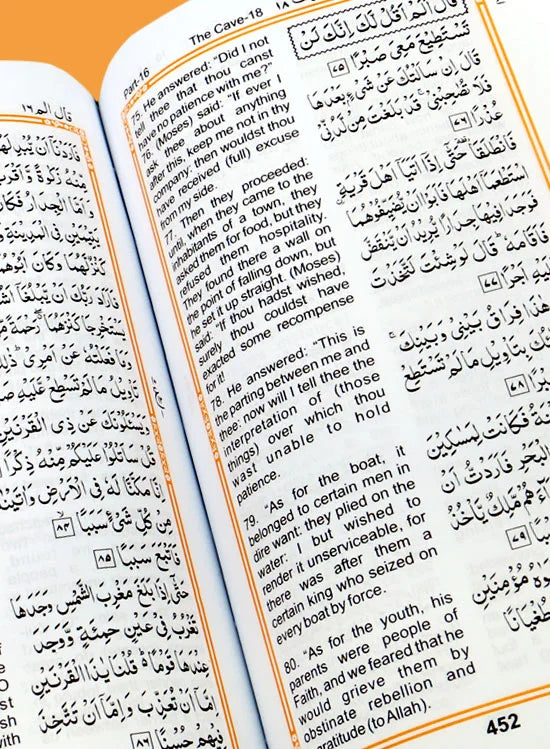 قال الم ١٦
فَاَرَدْنَاۤ اَنْ يُّبْدِلَهُمَا
مِّنْهُ زَكٰوةً وَّاَقْرَبَ
وَاَمَّا الْجِدَارُ فَكَانَ
يَتِيْمَيْنِ فِى الْمَدِيْنَةِ
كَنْزٌ لَّهُمَا وَكَانَ اَبُوْهُمَا
فَاَرَادَ رَبُّكَ اَنْ يَّبْلُغَاۤ
يَسْتَخْرِجَا كَنْزَهُمَا رَحْمَةً
وَمَا فَعَلْتُهٗ عَنْ اَمْرِيْ
تَاْوِيْلُ مَا لَمْ تَسْطِعْ عَّلَيْهِ
وَيَسْئَلُوْنَكَ عَنْ ذِى الْقَرْنَيْنِ
قُلْ سَاَتْلُوْا عَلَيْكُمْ مِّنْهُ ذِكْرًا
اِنَّا مَكَّنَّا لَهٗ فِى الْاَرْضِ وَاٰتَيْنٰهُ
مِنْ كُلِّ شَيْءٍ سَبَبًا ٨٤
فَاَتْبَعَ سَبَبًا ٨٥
حَتّٰۤى اِذَا بَلَغَ مَغْرِبَ الشَّمْسِ وَجَدَهَا
تَغْرُبُ فِيْ عَيْنٍ حَمِئَةٍ وَّوَجَدَ
عِنْدَهَا قَوْمًا قُلْنَا يٰذَا الْقَرْنَيْنِ
اِمَّاۤ اَنْ تُعَذِّبَ وَاِمَّاۤ اَنْ تَتَّخِذَ
فِيْهِمْ حُسْنًا ٨٦
Part-16 The Cave-18 ١٨
75. He answered: "Did I not
tell thee that thou canst
have no patience with me?"
76. (Moses) said: "If ever I
ask thee about anything
after this, keep me not in thy
company: then wouldst thou
have received (full) excuse
from my side.
77. Then they proceeded:
until, when they came to the
inhabitants of a town, they
asked them for food, but they
refused them hospitality.
They found there a wall on
the point of falling down, but
he set it up straight. (Moses)
said: "If thou hadst wished,
surely thou couldst have
exacted some recompense
for it!
78. He answered: "This is
the parting between me and
thee: now will I tell thee the
interpretation of (those
things) over which thou
wast unable to hold
patience.
79. "As for the boat, it
belonged to certain men in
dire want: they plied on the
water: I but wished to
render it unserviceable, for
there was after them a
certain king who seized on
every boat by force.
80. "As for the youth, his
parents were people of
Faith, and we feared that he
would grieve them by
obstinate rebellion and
gratitude (to Allah).
قَالَ اَلَمْ اَقُلْ لَّكَ اِنَّكَ لَنْ
تَسْتَطِيْعَ مَعِيَ صَبْرًا ٧٥
قَالَ اِنْ سَاَلْتُكَ عَنْ شَيْءٍۢ بَعْدَهَا
فَلَا تُصٰحِبْنِيْ قَدْ بَلَغْتَ مِنْ لَّدُنِّيْ
عُذْرًا ٧٦
فَانْطَلَقَا حَتّٰۤى اِذَاۤ اَتَيَاۤ اَهْلَ قَرْيَةِ
اسْتَطْعَمَاۤ اَهْلَهَا فَاَبَوْا اَنْ يُّضَيِّفُوْهُمَا
فَوَجَدَا فِيْهَا جِدَارًا يُّرِيْدُ اَنْ يَّنْقَضَّ
فَاَقَامَهٗ قَالَ لَوْ شِئْتَ لَتَّخَذْتَ
عَلَيْهِ اَجْرًا ٧٧
هٰذَا فِرَاقُ بَيْنِيْ وَبَيْنِكَ
بِتَاْوِيْلِ مَا لَمْ تَسْتَطِعْ
٧٨
فَكَانَتْ لِمَسٰكِيْنَ
الْبَحْرِ فَاَرَدْتُّ اَنْ
مَّلِكٌ يَّاْخُذُ
٧٩
مُؤْمِنَيْنِ
طُغْيَانًا
452